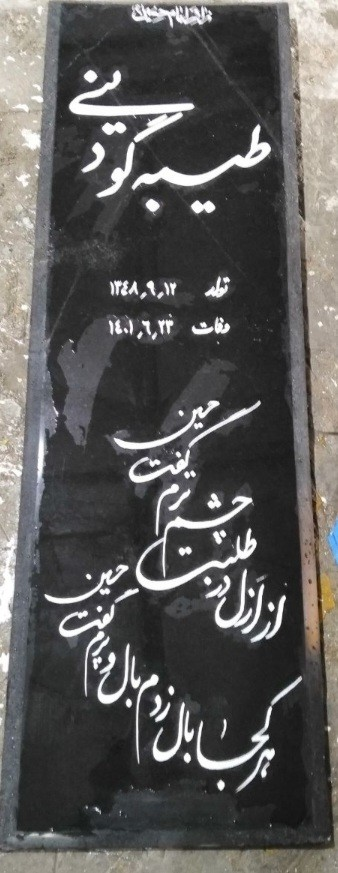 طیبه گودینی
تولد ۱۳۴۸٫۹٫۱۲
وفات ۱۴۰۱٫۶٫۲۳
از ازل در طلبت چشم ترم گفت حسین
هر کجا بال زدم بال و پرم گفت حسین